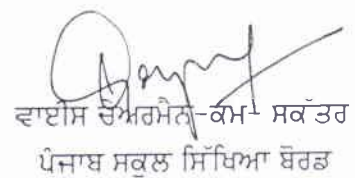 ਵਾਈਸ ਚੇਅਰਮੈਨ-ਕਮ- ਸਕੱਤਰ
ਪੰਜਾਬ ਸਕੂਲ ਸਿੱਖਿਆ ਬੋਰਡ